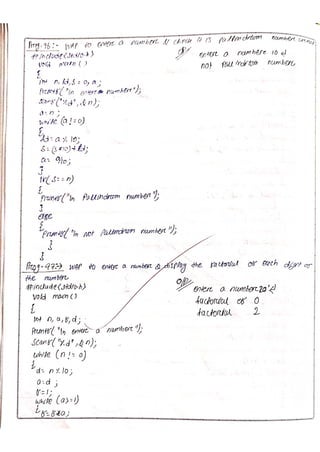 Prog-96:- WAP to enter a number & check it is Pallendrom number
#include<stdio.h>
void main()
{
int n, d, s=0, a;
Printf("\n enter a number");
Scanf("%d", &n);
a=n;
while (a!=0)
{
d=a%10;
S=(s*10)+d;
a=a/10;
}
if(S==n)
{
Printf("\n Pallendrom number");
}
else
{
Printf("\n not Pallendrom number");
}
}
O/P
enter a number 10
not Pallendrom number
Prog-97:- WAP to enter a number & display the factorial of each digit of
the number
#include<stdio.h>
void main()
{
int n, a, d;
Printf("\n enter a number");
Scanf("%d", &n);
while (n!=0)
{
d=n%10;
a=d;
while (a>=1)
{
O/P
enter a number
factorial of 0
factorial 2